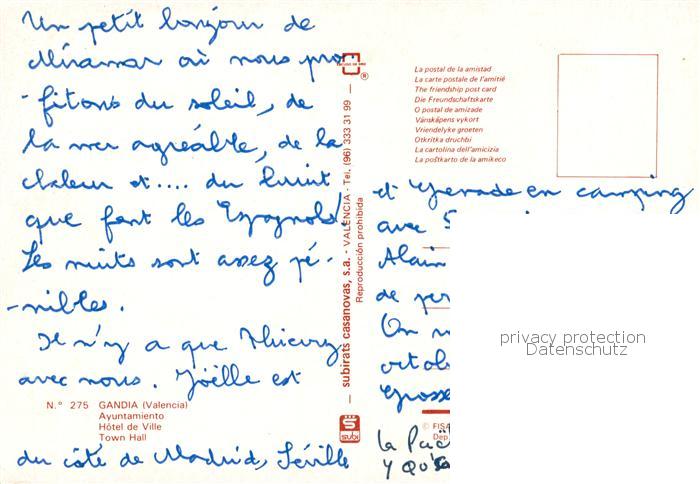 Un petit bonjour de
Miramar où nous pro
-fitons du soleil, de
la mer agréable, de la
chaleur et.... du bruit
que font les Espagnols!
Les nuits sont assez pé-
-nibles.
Il n'y a que Thierry
avec nous. Joëlle est
N.º 275 GANDIA (Valencia)
Ayuntamiento
Hôtel de Ville
Town Hall
du côté de Madrid, Séville
subirats casanovas, s.a. - VALENCIA - Tel. (96) 333 31 99 —
Reproducción prohibida
®
subi
La postal de la amistad
La carte postale de l'amitié
The friendship post card
Die Freundschaftskarte
O postal de amizade
Vänskåpens vykort
Vriendelyke groeten
Otkritka druchbi
La cartolina dell'amicizia
La poŝtkarto de la amikeco
et Grenade en camping
avec 5
Alain
de per
On
octob
Grosse
© FISA
Dep
la
y qu'
privacy protection
Datenschutz